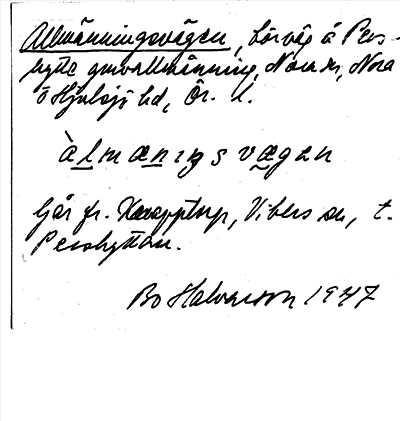 Allmänningsvägen, körväg å Pers-
hytte gruvallmänning, Nora sn, Nora
o Hjulsjö hd, Ör. l.
àlmænıŋsvægen
Går fr. Knapptorp, Vikers sn, t.
Pershyttan.
Bo Halvarson 1947